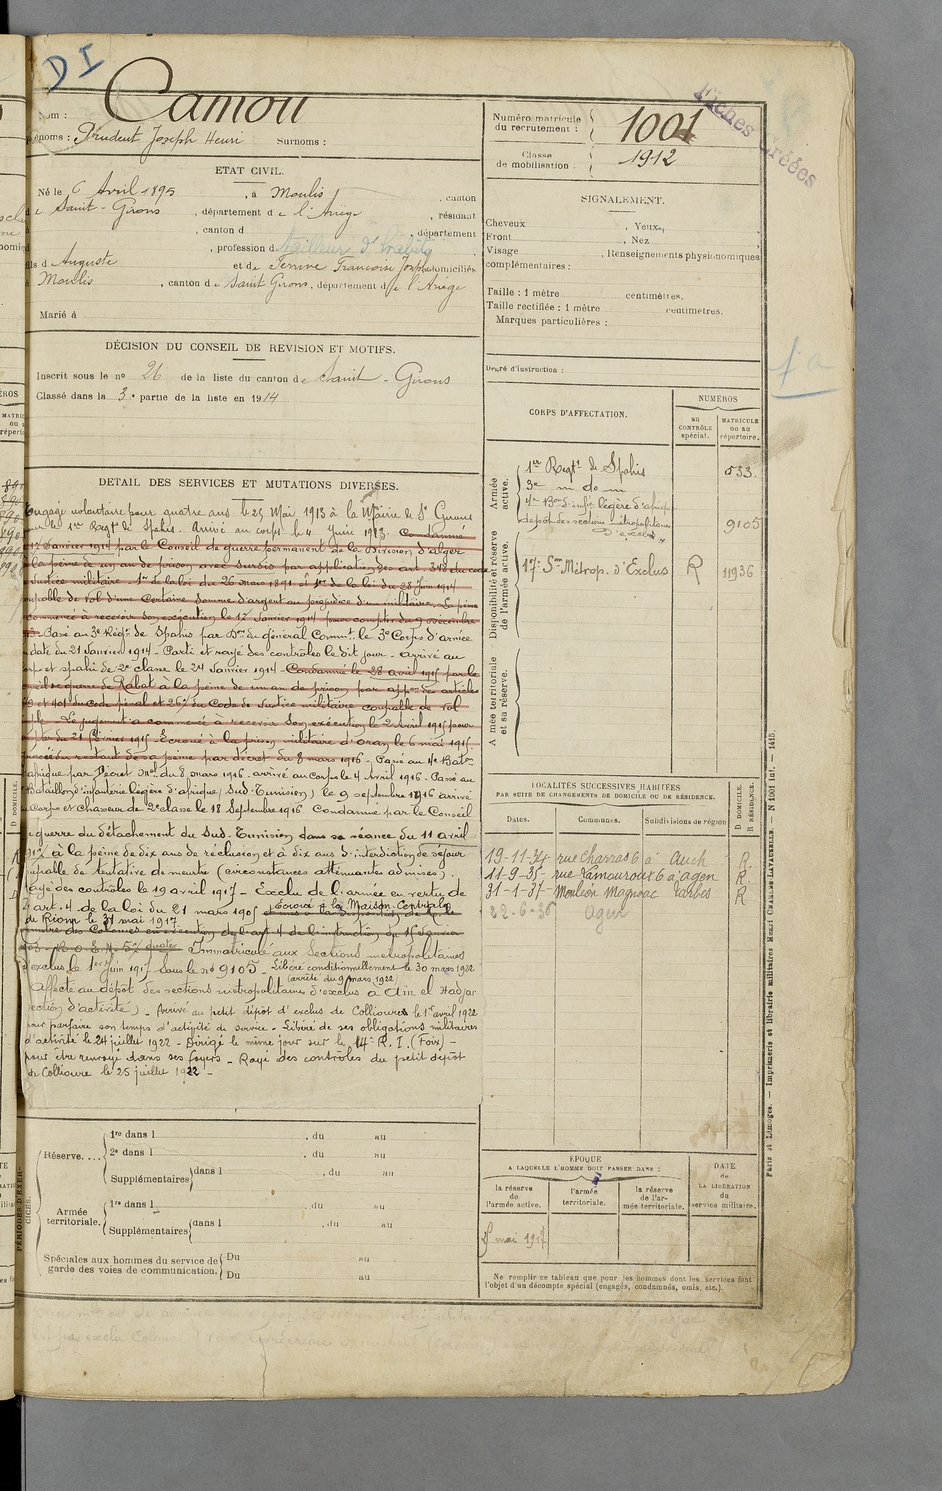 DI
Nom : Camou
Prénoms : Prudent Joseph Henri Surnoms :
Numéro matricule du recrutement : 1001
Classe de mobilisation : 1912
Fiches
ETAT CIVIL.
Né le 6 Avril 1895, à Moulis, canton
de Saint-Girons, département de l'Ariège, résidant
, canton d , département
, profession d tailleur d'habits
fils d Auguste et de Ferrine Francoise Josph domiciliés
à Moulis, canton de Saint Girons, département de l'Ariège
Marié à
SIGNALEMENT.
Cheveux , Yeux ,
Front , Nez
Visage , Renseignements physionomiques
complémentaires :
Taille : 1 mètre centimètres.
Taille rectifiée : 1 mètre centimètres.
Marques particulières :
Degré d'instruction :
DÉCISION DU CONSEIL DE REVISION ET MOTIFS.
Inscrit sous le no 26 de la liste du canton de Saint-Girons
Classé dans la 3e partie de la liste en 1914
CORPS D'AFFECTATION.
NUMÉROS
au CONTRÔLE spécial.
MATRICULE OU AU répertoire.
Armée active.
1er Regt de Spahis 533
3e _ do _
4e Bon d'infie légère d'afrique
depôt des sections métropolitaines d'exclus 9105
Disponibilité et réserve de l'armée active.
17e Son Métrop. d'Exclus R 11936
Armée territoriale et sa réserve.
DETAIL DES SERVICES ET MUTATIONS DIVERSES.
Engagé volontaire pour quatre ans le 25 Mai 1913 à la Mairie de St Girons
pour le 1er Regt de Spahis. Arrivé au corps le 4 Juin 1913. Condamné
le 17 Janvier 1914 par le Conseil de guerre permanent de la Division d'alger
à la peine de un an de prison avec sursis par application des art. 248 du code
de Justice militaire, 1er de la loi du 26 mars 1891 et 1er de la loi du 28 Juin 1904
coupable de Vol d'une Certaine Somme d'argent au préjudice d'un militaire. La peine
commencé à recevoir son exécution le 17 Janvier 1914 pour compter du 9 décembre
1913. Passé au 3e Régt de Spahis par Don du général Commt le 3e Corps d'armée
en date du 21 Janvier 1914. Parti et rayé des contrôles le dit jour. arrivé au
corps et spahi de 2e classe le 24 Janvier 1914. Condamné le 28 avril 1915 par le
conseil de guerre de Rabat à la peine de un an de prison par appon des articles
et 401 du Code pénal et 267 du Code de Justice militaire coupable de Vol
simple. Le jugement a commencé à recevoir Son exécution le 2 Avril 1915 pour
compter du 21 février 1915. Ecroué à la prison militaire d'Oran le 6 mai 1915.
restant de sa peine par décret du 8 mars 1916. Passé au 4e Baton
d'afrique par Décret du 8 mars 1916. arrivé au Corps le 4 Avril 1916. Passé au
Bataillon d'infanterie légère d'afrique (Sud Tunisien) le 9 septembre 1916 arrivé
au Corps et Chasseur de 2e classe le 18 Septembre 1916 Condamné par le Conseil
de guerre du détachement du Sud-Tunisien dans sa séance du 11 avril
1917 à la peine de dix ans de réclusion et à dix ans d'interdiction de séjour
coupable de tentative de meurtre (circonstances atténuantes admises)
Rayé des contrôles le 19 avril 1917. Exclu de l'armée en vertu de
l'art. 4 de la loi du 21 mars 1905
Ecroué à la Maison Centrale
de Riom le 31 mai 1917
ministre des Colonies en exécution de l'art 4 de l'instruction du Janvier
Immatriculé aux Sections métropolitaines
d'exclus le 1er Juin 1917 sous le no 9105. Libéré conditionnellement le 30 mars 1922
(arrêté du 9 mars 1922)
Affecté au dépôt des sections métropolitaines d'exclus à Aïn el Hadjar
(section d'activité). Arrivé au petit dépôt d'exclus de Collioure le 1er avril 1922
pour parfaire son temps d'activité de service. Libéré de ses obligations militaires
d'activité le 24 juillet 1922. Dirigé le même jour sur le 14e R.I. (Foix)
pour être renvoyé dans ses foyers. Rayé des contrôles du petit dépôt
de Collioure le 25 juillet 1922.
LOCALITÉS SUCCESSIVES HABITÉES
PAR SUITE DE CHANGEMENTS DE DOMICILE OU DE RÉSIDENCE.
Dates. Communes. Subdivisions de région D DOMICILE. R RÉSIDENCE.
19-11-34 rue Charras 6 à Auch R
11-9-35 rue Lamouroux 6 à agen R
31-1-37 Mauléon Magnoac Tarbes R
22-6-36 agen
Réserve.... 1re dans l , du au
2e dans l , du au
Supplémentaires dans l , du au
Armée territoriale. 1re dans l , du au
Supplémentaires dans l , du au
Spéciales aux hommes du service de garde des voies de communication. Du au
Du au
PÉRIODES D'EXERCICES.
ÉPOQUE
A LAQUELLE L'HOMME DOIT PASSER DANS :
la réserve de l'armée active.
l'armée territoriale.
la réserve de l'armée territoriale.
DATE de LA LIBÉRATION du service militaire.
25 mai 1917
Ne remplir ce tableau que pour les hommes dont les services font
l'objet d'un décompte spécial (engagés, condamnés, omis, etc.).
Paris et Limoges. — Imprimerie et librairie militaires Henri CHARLES-LAVAUZELLE. — N 1001 int. — 1415.